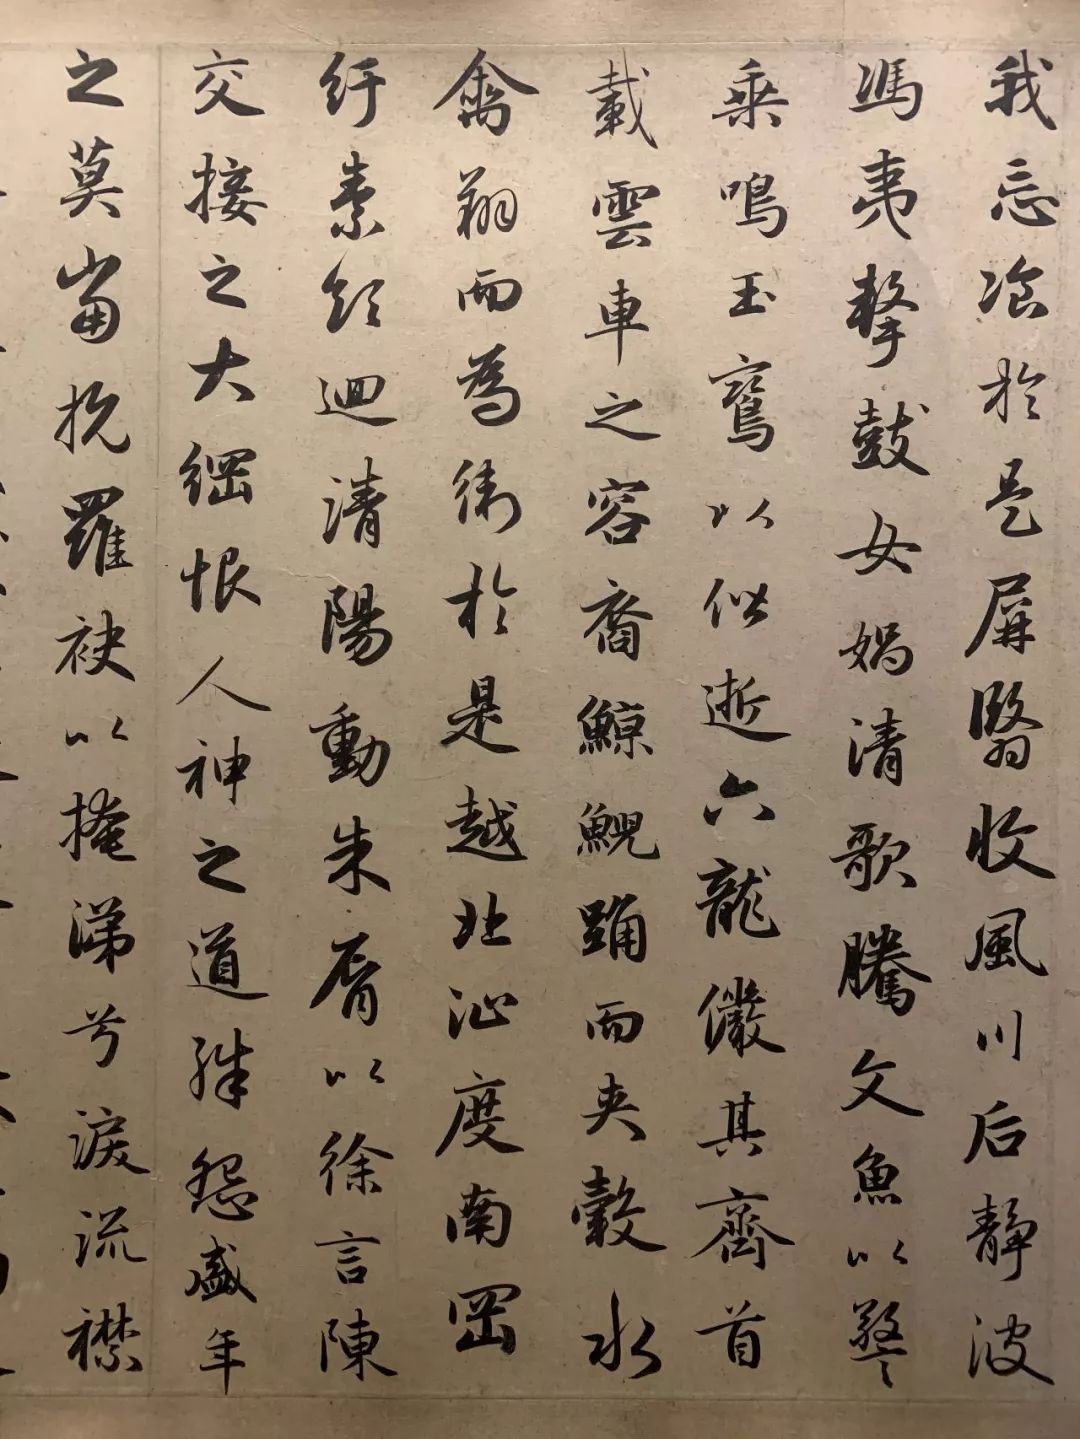 我忘飡於是屏翳收風川后靜波
馮夷擊鼓女媧清歌騰文魚以警
乘鳴玉鸞以偕逝六龍儼其齊首
載雲車之容裔鯨鯢踊而夾轂水
禽翔而為衛於是越北沚度南岡
紆素領迴清陽動朱脣以徐言陳
交接之大綱恨人神之道殊怨盛年
之莫當抗羅袂以掩涕兮淚流襟